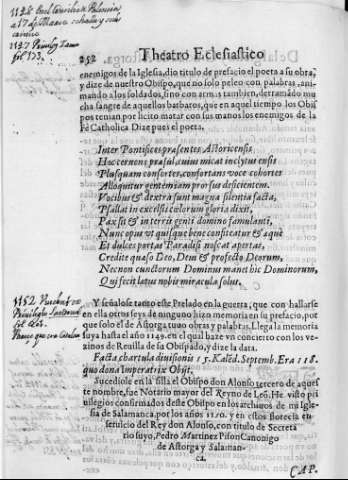 252 Theatro Eclesiastico
enemigos de la Iglesia, dio titulo de prefacio el poeta a su obra,
y dize de nuestro Obispo, que no solo peleo con palabras, ani-
mando a los soldados, sino con armas tambien, derramãdo mu
cha sangre de aquellos barbaros, que en aquel tiempo los Obis
pos tenian por licito matar con sus manos los enemigos de la
Fè Catholica Dize pues el poeta.
Inter Pontifices praesentes Astoricensis,
Hoc cernens praesul, cuius micat inclytus ensis
Plusquam consortes, confortans voce cohortes
Alloquitur gentem iam prorsus deficientem.
Vocibus & dextra sunt magna silentia facta,
Psallat in excelsis caelorum gloria dixit,
Pax sit & in terris genti domino famulanti,
Nunc opus ut quisque bene confiteatur & aequè
Et dulces portas Paradisi noscat apertas,
Credite quaeso Deo, Dem & profecto Deorum,
Necnon cunctorum Dominus manet hic Dominorum,
Qui fecit latus nobis miracula solus.
Y señalose tanto este Prelado en la guerra, que con hallarse
en ella otros seys de ninguno hizo memoria en su prefacio, por
que solo el de Astorga tuuo obras y palabras. Llega la memoria
suya hasta el año 1149. en el qual haze vn concierto con los ve-
zinos de Reuilla de su Obispado, y dize la data.
Facta charta divisionis 15. Kaled. Septemb. Era 118.
quo dona Imperatrix Obijt,
Sucediole en la silla el Obispo don Alonso tercero de aques
te nombre, fue Notario mayor del Reyno de Leõ. He visto pri
uilegios confirmados deste Obispo en los archiuos de mi Igle
sia de Salamanca, por los años 1150. y en estos florecia en
seruicio del Rey don Alonso, con titulo de Secreta
rio suyo, Pedro Martinez Pison Canonigo
de Astorga y Salaman-
ca.
CAP.